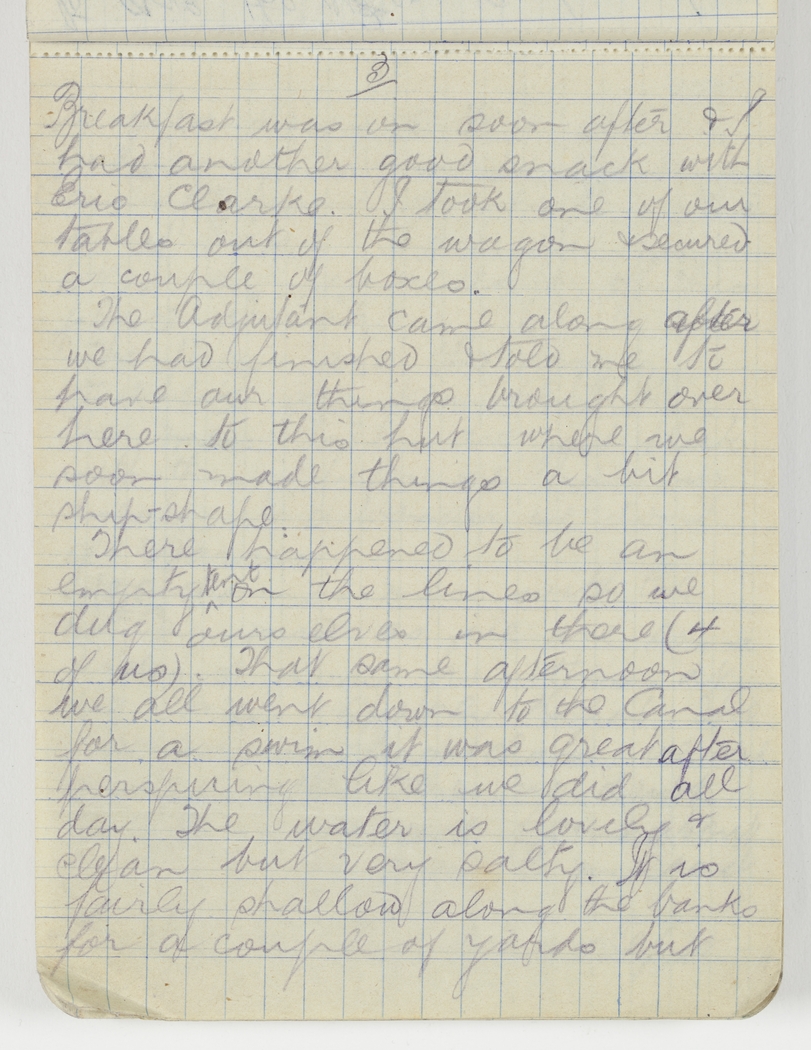 3
Breakfast was on soon after & I
had another good snack with
Eric Clarke. I took one of our
tables out of the wagon & secured
a couple of boxes.
The Adjutant came along after
we had finished & told me to
have our things brought over
here to this hut where we
soon made things a bit
ship-shape.
There happened to be an
empty tent in the lines so we
dug ourselves in there (4
of us). That same afternoon
we all went down to the Canal
for a swim it was great after
perspiring like we did all
day. The water is lovely &
clean but very salty. It is
fairly shallow along the banks
for a couple of yards but